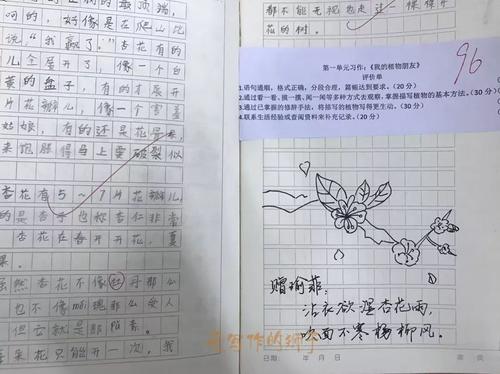 呵的，好像是在爬山比
说"我赢了。"杏花有的
儿全展开了，像一个白
黄的盘子，有的才展开
片花瓣儿，像一个害羞
姑娘，有的还是花骨
来饱胀得马上要破裂似
杏花有5～7片花瓣儿，
的是杏子也称杏仁非常
杏花在春开开花，夏
果。
虽然杏花不像牡丹那么
也不像玫瑰那么受人
但它就是那
每朵花只能开一次，我
都不能无视也走过一棵棵开
花的树。
第一单元习作：《我的植物朋友》
评价单
96
1.语句通顺，格式正确，分段合理，篇幅达到要求。（20分）
2.通过看一看、摸一摸、闻一闻等多种方式去观察，掌握描写植物的基本方法。（30分）
3.通过已掌握的修辞手法，将描写的植物写得更生动。（30分）
4.联系生活经验或查阅资料来补充记录。（20分）
赠瑜菲：
沾衣欲湿杏花雨，
吹面不寒杨柳风。
写作的种子
日期： 年 月 日